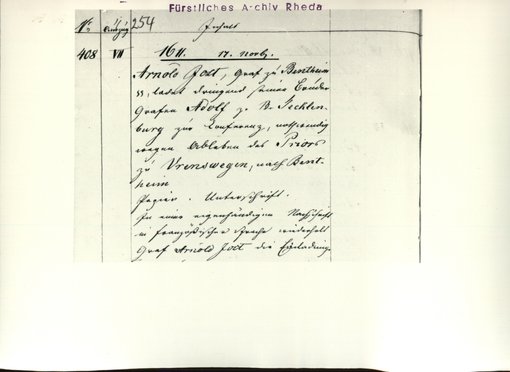 Fürstliches Archiv Rheda
No 254 Inhalt
408 VII 1611. 17. Novbr.
Arnold Jost, Graf zu Bentheim
ladet dringend seinen Bruder
Grafen Adolf z. B. Tecklen-
burg zur Conferenz, nothwendig
wegen Ableben des Priors
zu Vrenswegen, nach Bent-
heim
Papier. Unterschrift.
In einer eigenhändigen Nachschrift
in französischer Sprache wiederholt
Graf Arnold Jost die Einladung